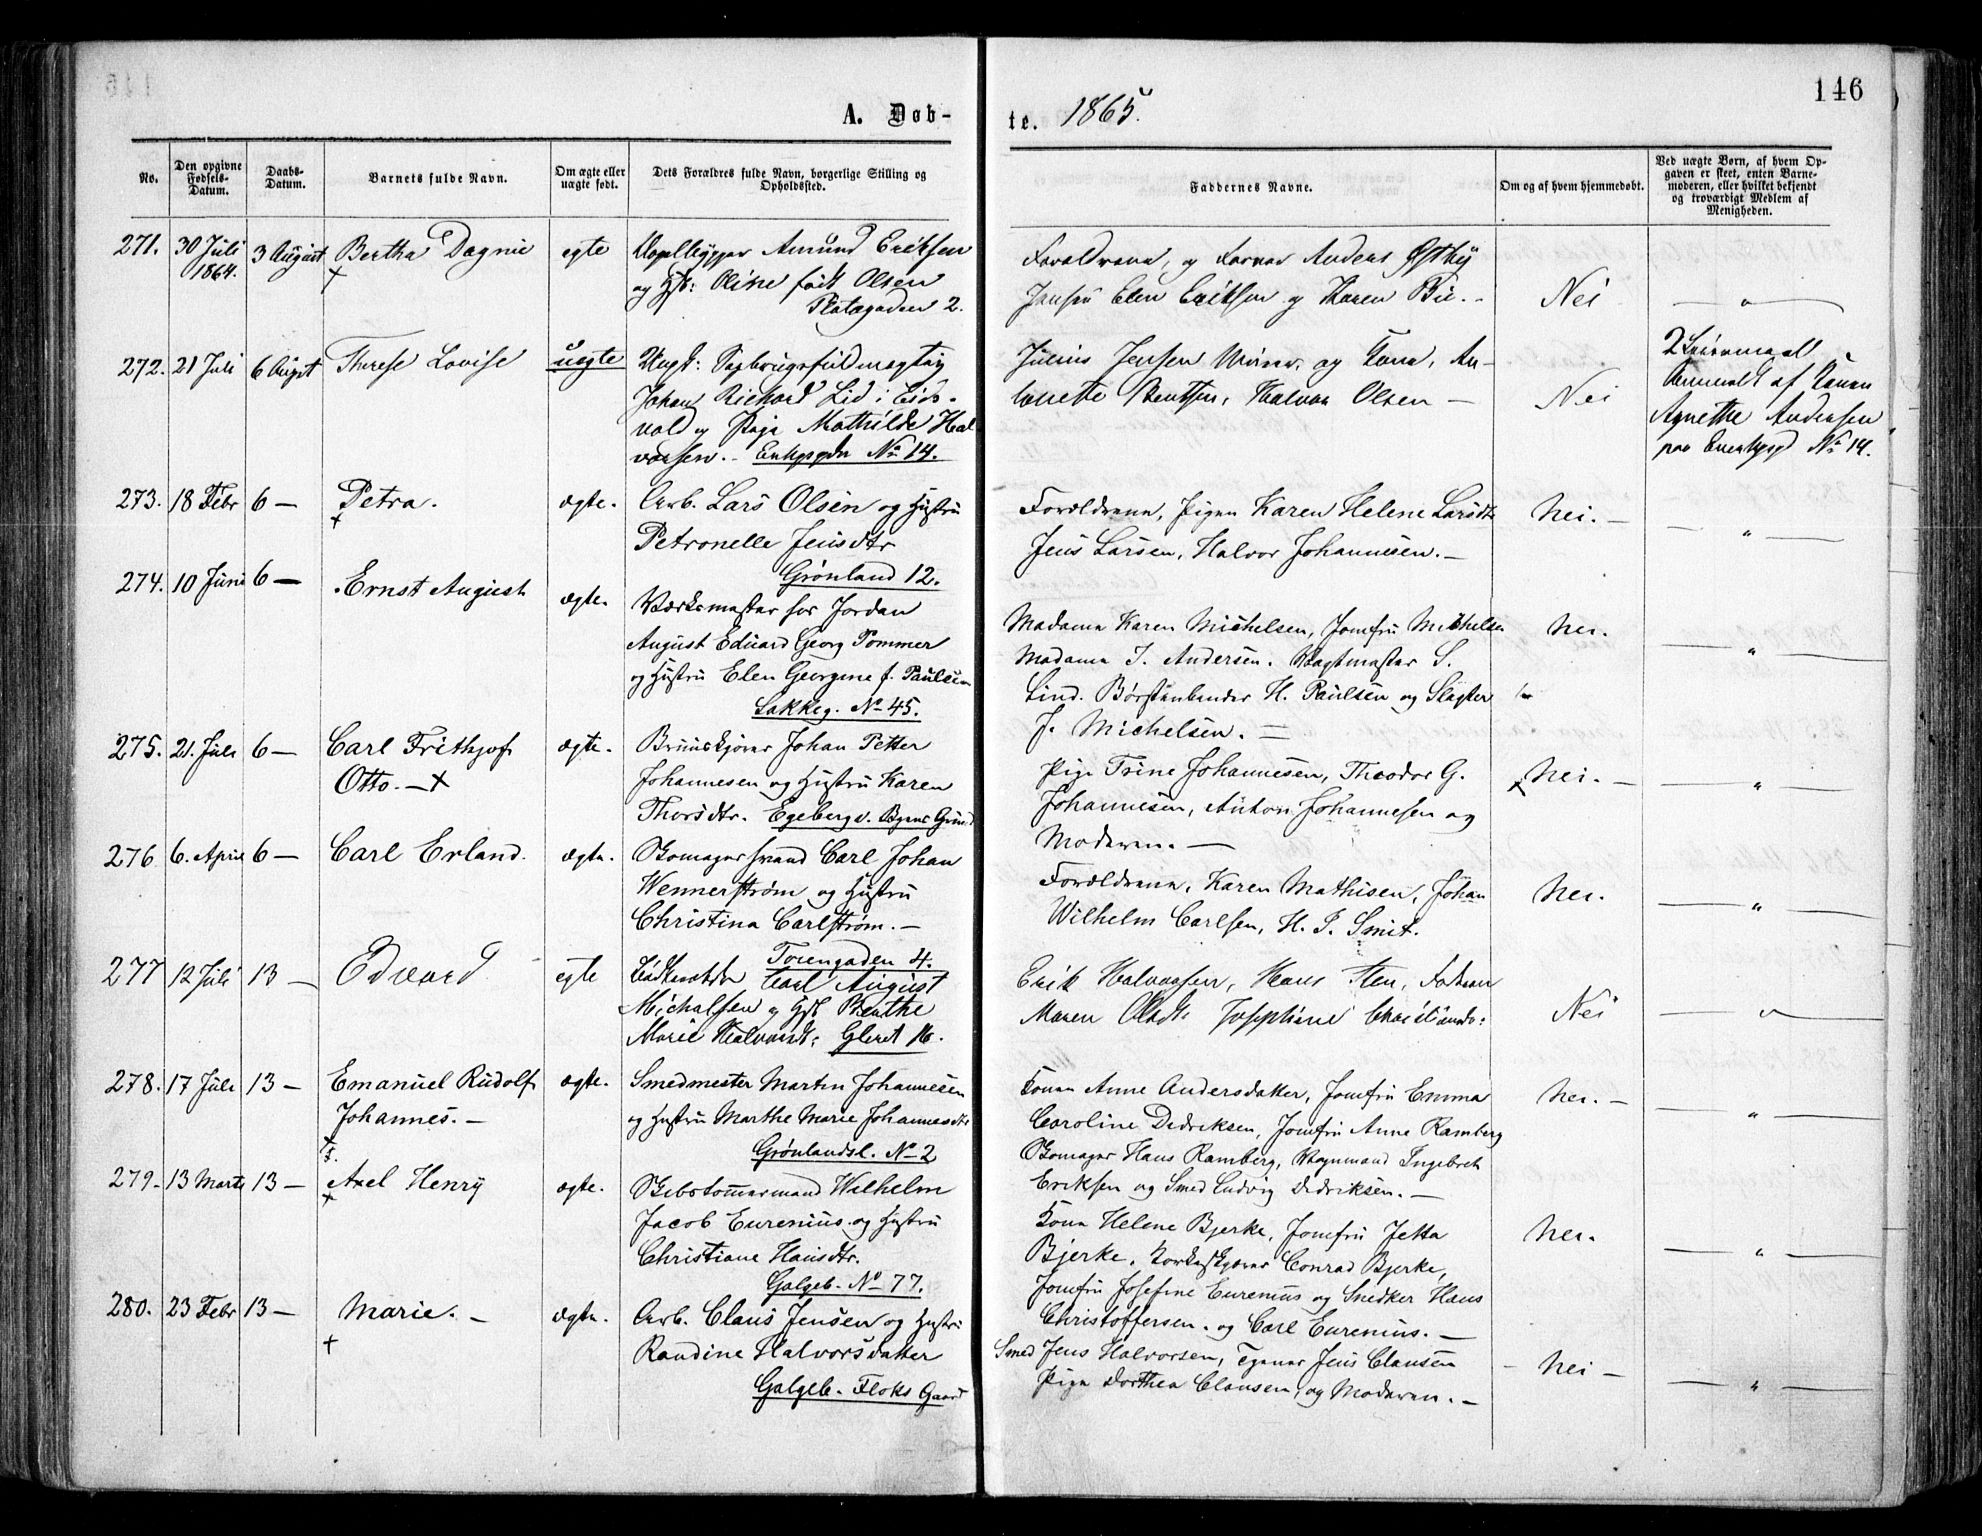 146
A. Døb-
te. 1865.
No.
Den opgivne Fødsels-Datum.
Daabs-Datum.
Barnets fulde Navn.
Om ægte eller uægte født.
Dets Forældres fulde Navn, borgerlige Stilling og Opholdssted.
Faddernes Navne.
Om og af hvem hjemmedøbt.
Ved uægte Børn, af hvem Opgaven er skeet, enten Barnemoderen, eller hvilket bekjendt og troværdigt Medlem af Menigheden.
271. 30 Juli 1864. 3 August Bertha Dagnie egte
Amund Eriksen
og Hst: Oline født Olsen
Platogaden 2.
Forældrene, og Anders Østby
Elen Eriksen og Karen Bie.
Nei
272. 21 Juli 6 Augst Therese Lovise uegte
Ungk: Sagbrugsfuldmegtig
Johan Richard Lid i Eids-
vold og Pige Mathilde Hal-
vorsen. Enkgdn No 14.
Julius Jensen og Kone, An-
Bentsen, Halvor Olsen
Nei
2 Leiermaal
Anmeldt af Konen
Agnethe Andersen
No 14.
273. 18 Febr 6 — Petra. ægte.
Arb. Lars Olsen og Hustru
Petronelle Jensdtr
Grønland 12.
Forældrene, Pigen Karen Helene Larsdtr
Jens Larsen, Halvor Johannesen.
Nei.
274. 10 Juni 6 — Ernst August ægte.
Værksmester hos Jordan
August Eduard Georg Pommer
og Hustru Elen Georgine f. Paulsen
Lakkeg. No 45.
Madame Karen Michelsen, Jomfru Michelsen
Madame J. Andersen. Vagtmester S.
Lind. Børstenbinder H. Paulsen og Slagter
J. Michelsen.
Nei.
275. 21. Juli 6 — Carl Frithjof Otto. ægte.
Johan Petter
Johannesen og Hustru Karen
Thorsdtr. Egeberg v. Byens Grund
Pige Trine Johannesen, Theodor G.
Johannesen, Anton Johannesen og
Moderen.
Nei.
276 6. April 6 — Carl Erland. ægte.
Skomagersvend Carl Johan
Wennerstrøm og Hustru
Christina Carlstrøm.
Torvgaden 4.
Forældrene, Karen Mathisen, Johan
Wilhelm Carlsen, H. P. Smit.
Nei.
277 12 Juli 13 — Edvard egte
Carl August
Michalsen og Hst Berthe
Marie Halvorsdt: Gleret 16.
Erik Halvorsen, Hans Sten, Faderen
Maren Olsdt: Josephine Christiansdr:
Nei
278. 17 Juli 13 — Emanuel Rudolf Johannes. ægte.
Smedmester Martin Johannesen
og Hustru Marthe Marie Johannesdtr
Grønlandsl. No 2
Konen Anne Andersdatter, Jomfru Emma
Caroline Didriksen, Jomfru Anne Ramberg
Skomager Hans Ramberg, Vognmand Ingebret
Eriksen og Smed Ludvig Didriksen.
Nei.
279. 13 Marts 13 — Axel Henry ægte.
Skibstømmermand Wilhelm
Jacob Eurenius og Hustru
Christiane Hansdtr.
Galgeb. No 77.
Kone Helene Bjerke, Jomfru Jetta
Bjerke, Conrad Bjerke,
Jomfru Josefine Eurenius og Snedker Hans
Christoffersen. og Carl Eurenius.
Nei.
280. 23 Febr 13 — Marie. ægte.
Arb. Claus Jensen og Hustru
Randine Halvorsdatter
Galgeb. Floks Gaard
Smed Jens Halvorsen, Jens Clausen
Pige Dorthea Clausen, og Moderen.
Nei